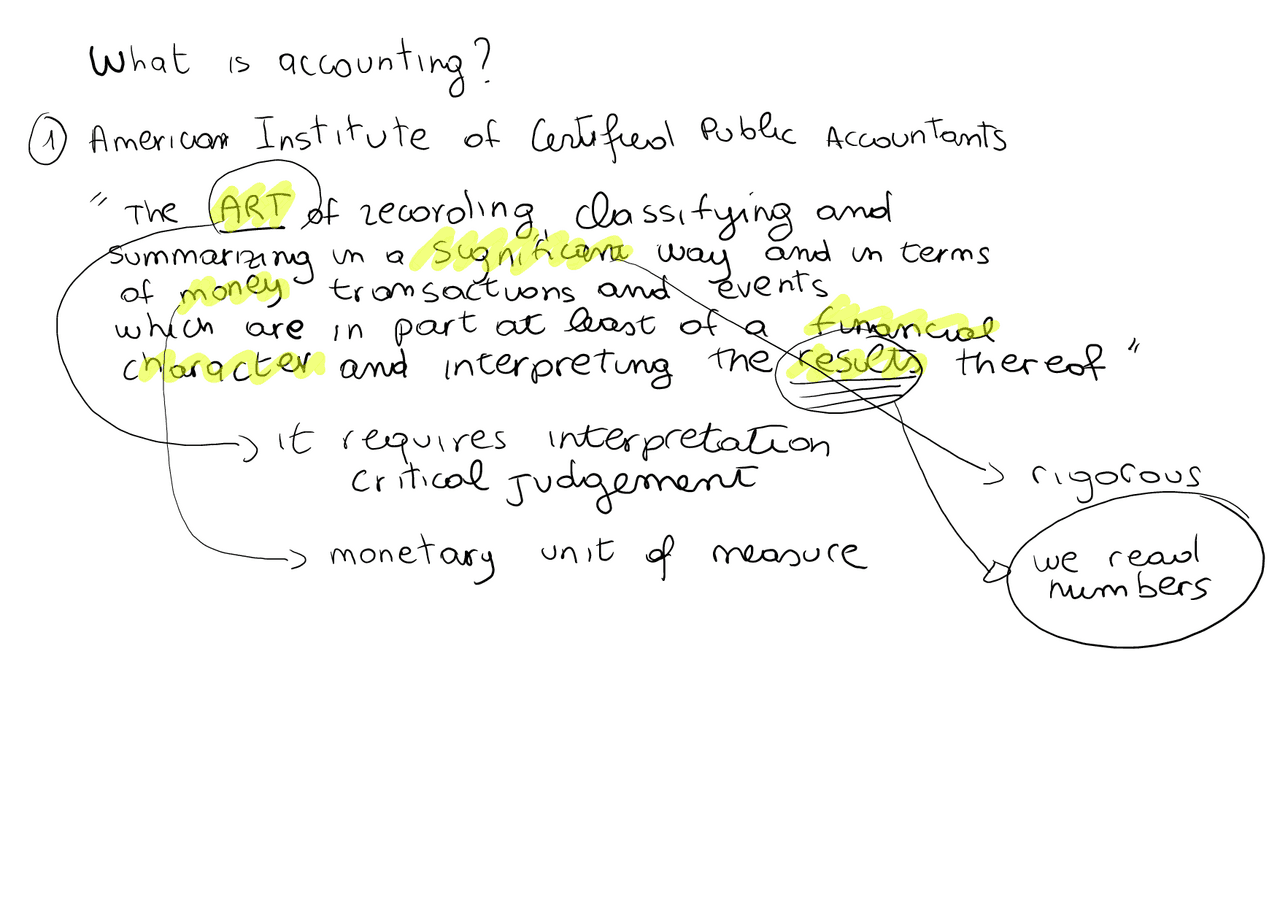 What is accounting?
① American Institute of Certified Public Accountants
" The ART of recording classifying and
summarizing in a significant way and in terms
of money transactions and events
which are in part at least of a financial
character and interpreting the results thereof "
it requires interpretation
critical judgement
rigorous
monetary unit of measure
we read
numbers